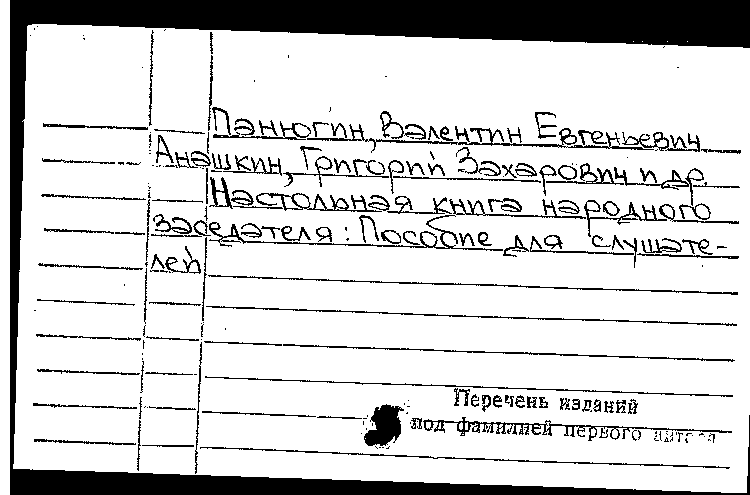 Панюгин, Валентин Евгеньевич
Анашкин, Григорий Захарович и др.
Настольная книга народного
заседателя: Пособие для слушате-
лей
Перечень изданий
под фамилией первого автора